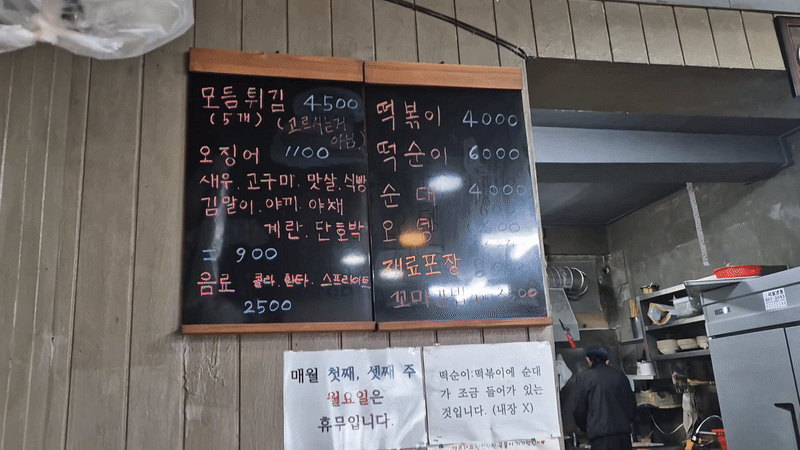 모듬튀김 4500
(5개) (고르시는거 아님.)
오징어 1100
새우. 고구마. 맛살. 식빵
김말이. 야끼. 야채
계란. 단호박
= 900
음료 콜라. 환타. 스프라이트
2500
떡볶이 4000
떡순이 6000
순대 4000
오뎅
재료포장
매월 첫째, 셋째 주
월요일은
휴무입니다.
떡순이:떡볶이에 순대
가 조금 들어가 있는
것입니다. (내장 X)